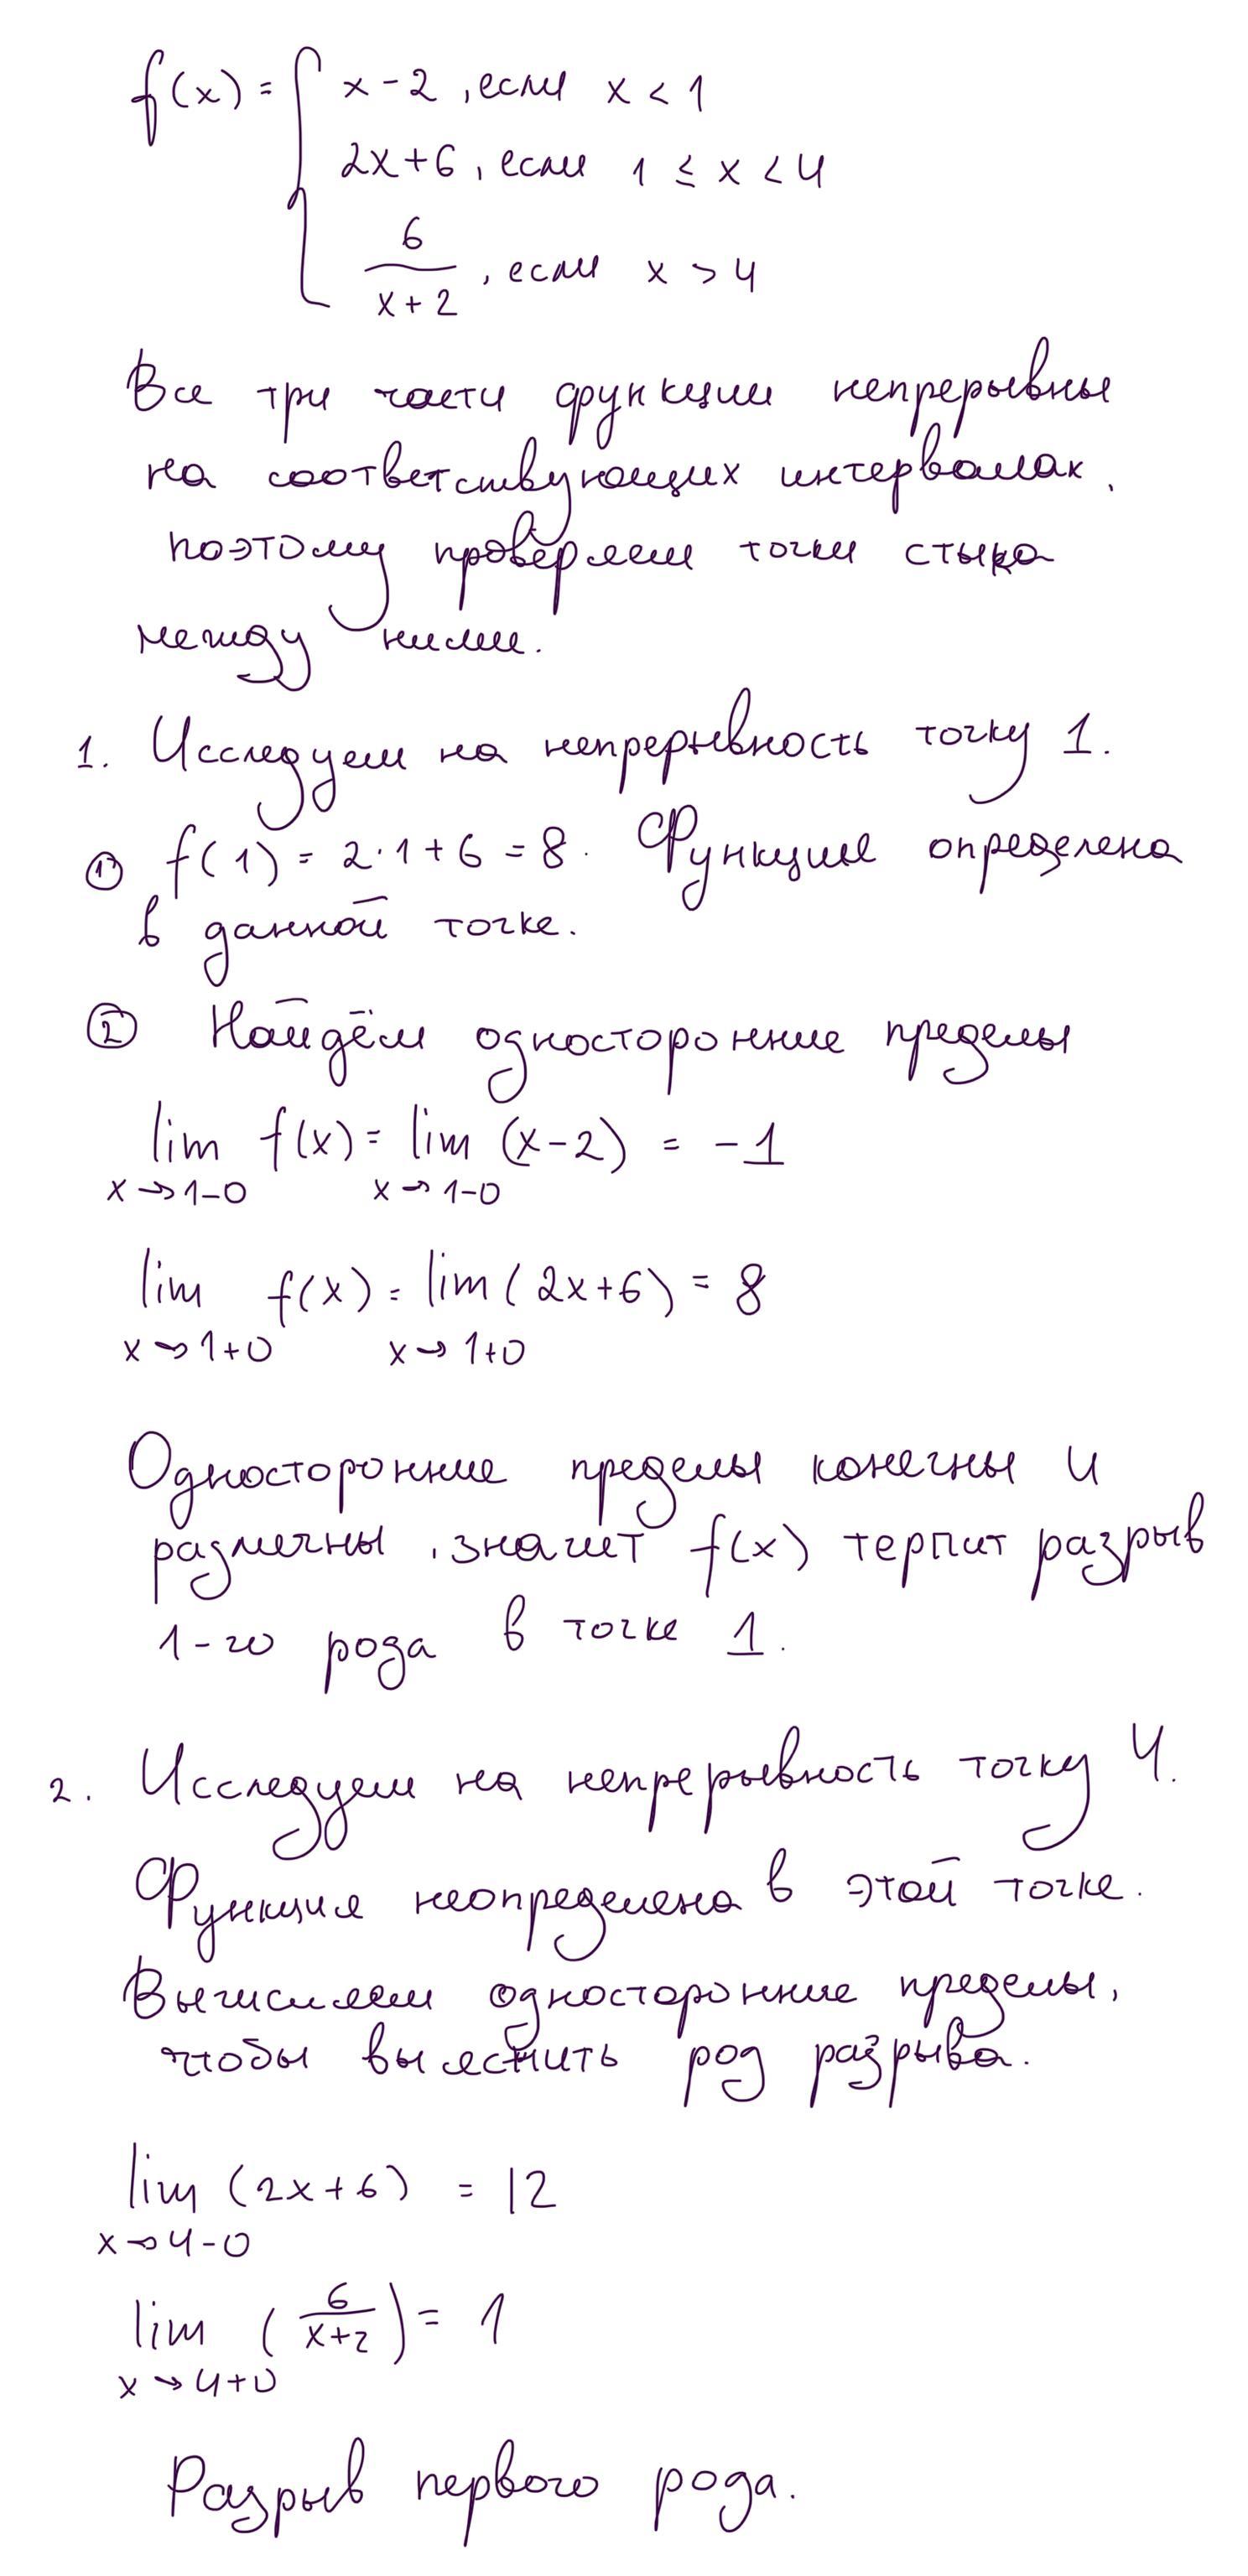 f(x) = { x - 2 , если x < 1
2x+6 , если 1 ≤ x < 4
6/(x+2) , если x > 4
Все три части функции непрерывны
на соответствующих интервалах,
поэтому проверяем точки стыка
между ними.
1. Исследуем на непрерывность точку 1.
① f(1) = 2·1+6 = 8. Функция определена
в данной точке.
② Найдём односторонние пределы
lim f(x) = lim (x-2) = -1
x→1-0 x→1-0
lim f(x) = lim (2x+6) = 8
x→1+0 x→1+0
Односторонние пределы конечны и
различны, значит f(x) терпит разрыв
1-го рода в точке 1.
2. Исследуем на непрерывность точку 4.
Функция неопределена в этой точке.
Вычисляем односторонние пределы,
чтобы выяснить род разрыва.
lim (2x+6) = 12
x→4-0
lim (6/(x+2)) = 1
x→4+0
Разрыв первого рода.